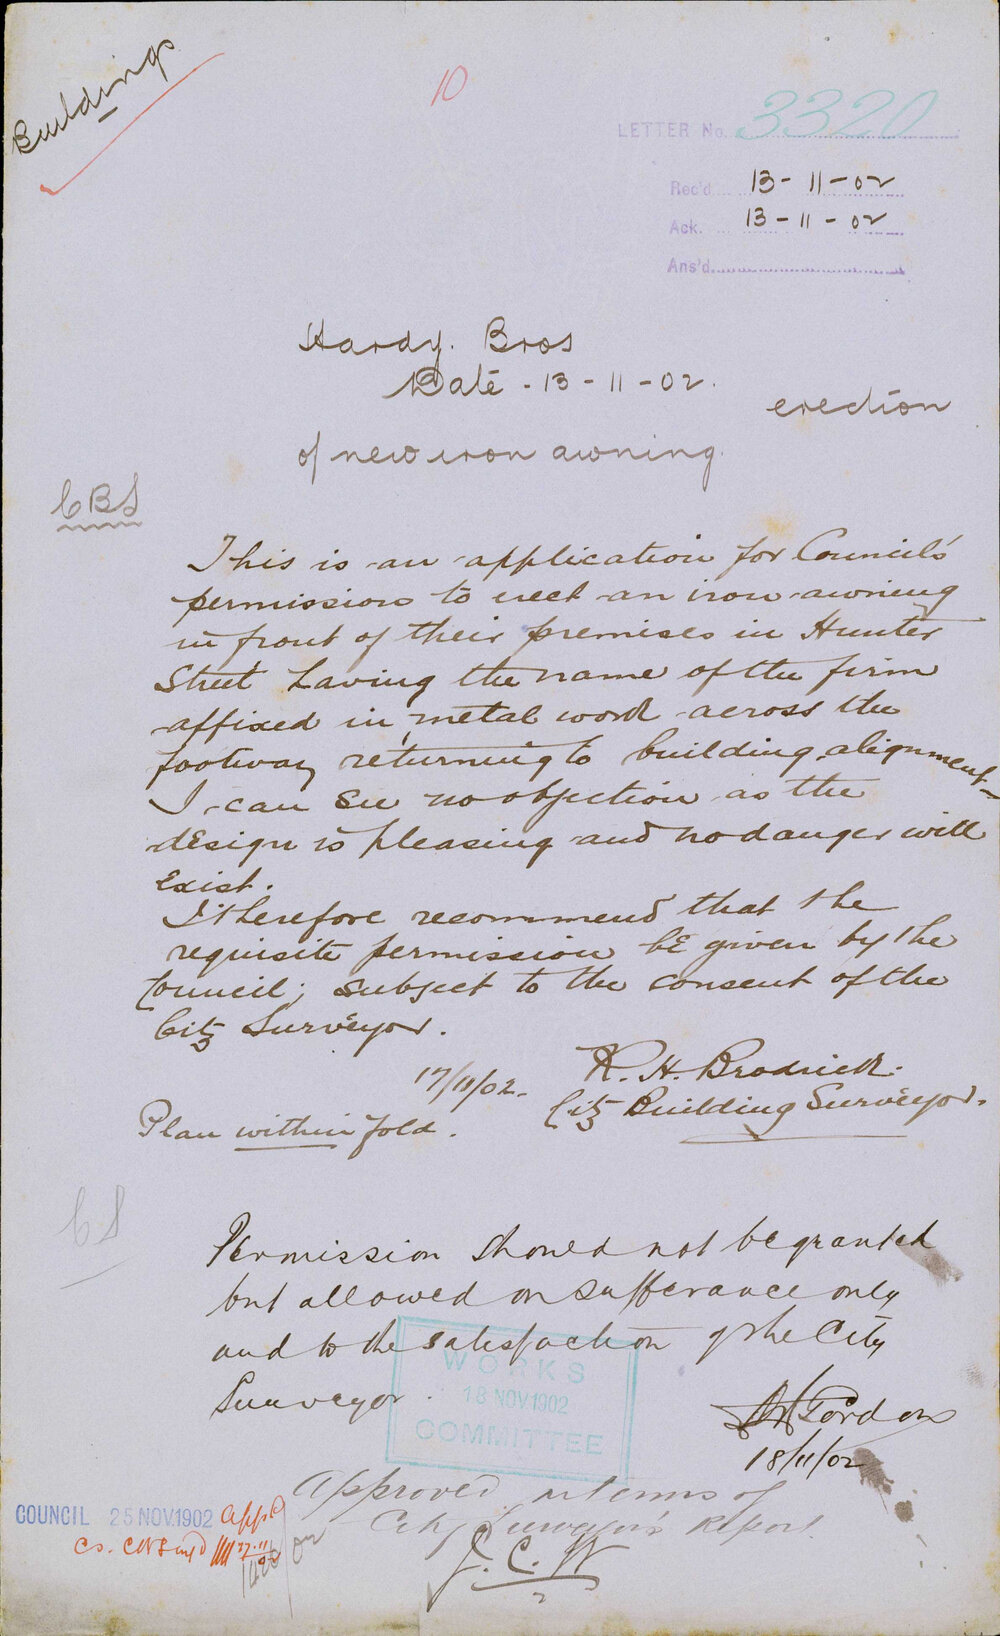 Buildings
10
LETTER No. 3320
Rec'd 13-11-02
Ack. 13-11-02
Ans'd
Hardy. Bros
Date - 13-11-02.
erection
of new iron awning.
CBS
This is an application for Council's
permission to erect an iron awning
in front of their premises in Hunter
Street having the name of the firm
affixed in metal work across the
footway returning to building alignment
I can see no objection as the
design is pleasing and no danger will
exist.
I therefore recommend that the
requisite permission be given by the
Council; subject to the consent of the
City Surveyor.
17/11/02.
R. H. Brodrick.
City Building Surveyor.
Plan within fold.
CS
Permission should not be granted
but allowed on sufferance only
and to the satisfaction of the City
Surveyor.
WORKS
18 NOV. 1902
COMMITTEE
Gordon
18/11/02
Approved in terms of
City Surveyor's Report.
J. C. W
COUNCIL 25 NOV. 1902 App'd
CS. CBS